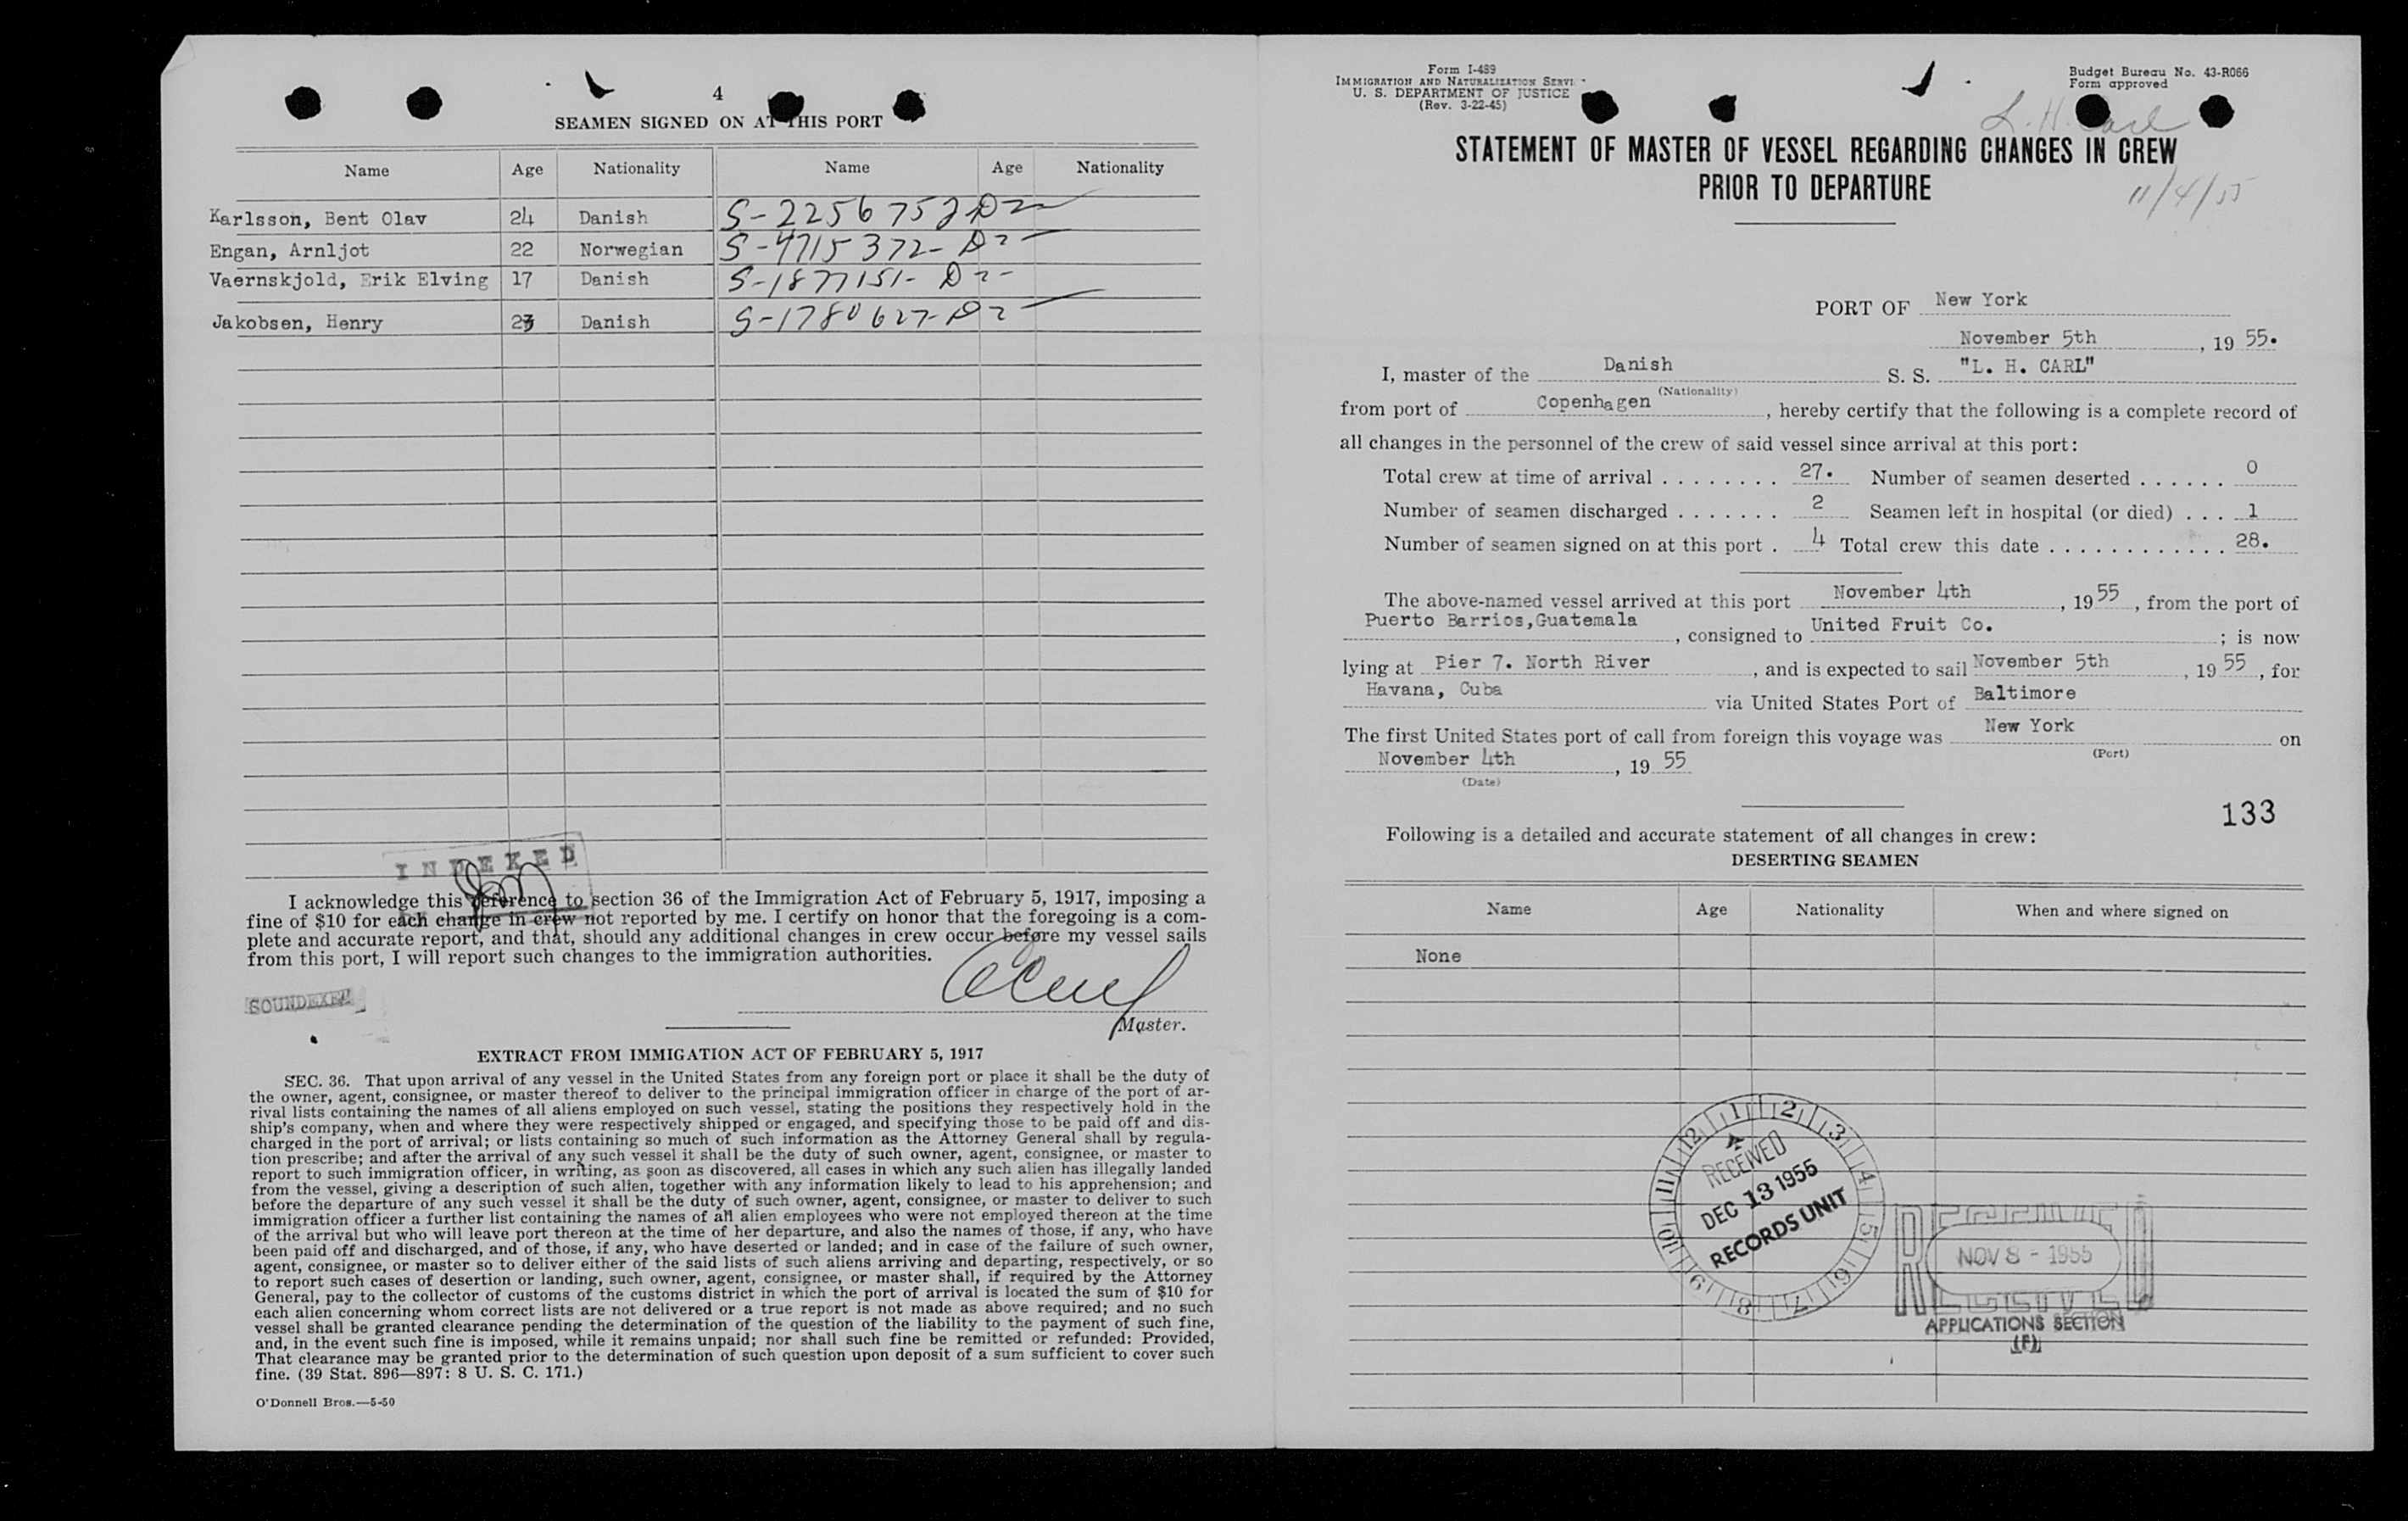 4
SEAMEN SIGNED ON AT THIS PORT
Name Age Nationality Name Age Nationality
Karlsson, Bent Olav 24 Danish S-2256752 D2
Engan, Arnljot 22 Norwegian S-4715372- D2
Vaernskjold, Erik Elving 17 Danish S-1877151- D2-
Jakobsen, Henry 23 Danish S-1780627- D2
INDEXED
I acknowledge this reference to section 36 of the Immigration Act of February 5, 1917, imposing a
fine of $10 for each change in crew not reported by me. I certify on honor that the foregoing is a com-
plete and accurate report, and that, should any additional changes in crew occur before my vessel sails
from this port, I will report such changes to the immigration authorities.
SOUNDEXED
Master.
EXTRACT FROM IMMIGATION ACT OF FEBRUARY 5, 1917
SEC. 36. That upon arrival of any vessel in the United States from any foreign port or place it shall be the duty of
the owner, agent, consignee, or master thereof to deliver to the principal immigration officer in charge of the port of ar-
rival lists containing the names of all aliens employed on such vessel, stating the positions they respectively hold in the
ship's company, when and where they were respectively shipped or engaged, and specifying those to be paid off and dis-
charged in the port of arrival; or lists containing so much of such information as the Attorney General shall by regula-
tion prescribe; and after the arrival of any such vessel it shall be the duty of such owner, agent, consignee, or master to
report to such immigration officer, in writing, as soon as discovered, all cases in which any such alien has illegally landed
from the vessel, giving a description of such alien, together with any information likely to lead to his apprehension; and
before the departure of any such vessel it shall be the duty of such owner, agent, consignee, or master to deliver to such
immigration officer a further list containing the names of all alien employees who were not employed thereon at the time
of the arrival but who will leave port thereon at the time of her departure, and also the names of those, if any, who have
been paid off and discharged, and of those, if any, who have deserted or landed; and in case of the failure of such owner,
agent, consignee, or master so to deliver either of the said lists of such aliens arriving and departing, respectively, or so
to report such cases of desertion or landing, such owner, agent, consignee, or master shall, if required by the Attorney
General, pay to the collector of customs of the customs district in which the port of arrival is located the sum of $10 for
each alien concerning whom correct lists are not delivered or a true report is not made as above required; and no such
vessel shall be granted clearance pending the determination of the question of the liability to the payment of such fine,
and, in the event such fine is imposed, while it remains unpaid; nor shall such fine be remitted or refunded: Provided,
That clearance may be granted prior to the determination of such question upon deposit of a sum sufficient to cover such
fine. (39 Stat. 896—897: 8 U. S. C. 171.)
O'Donnell Bros.—5-50
Form I-489
IMMIGRATION AND NATURALIZATION SERVI
U. S. DEPARTMENT OF JUSTICE
(Rev. 3-22-45)
Budget Bureau No. 43-R066
Form approved
L. H. Carl
STATEMENT OF MASTER OF VESSEL REGARDING CHANGES IN CREW
PRIOR TO DEPARTURE
11/4/55
PORT OF New York
November 5th, 19 55.
I, master of the Danish S. S. "L. H. CARL"
(Nationality)
from port of Copenhagen, hereby certify that the following is a complete record of
all changes in the personnel of the crew of said vessel since arrival at this port:
Total crew at time of arrival ........ 27. Number of seamen deserted ...... 0
Number of seamen discharged ....... 2 Seamen left in hospital (or died) ... 1
Number of seamen signed on at this port . 4 Total crew this date ............. 28.
The above-named vessel arrived at this port November 4th, 19 55, from the port of
Puerto Barrios, Guatemala, consigned to United Fruit Co.; is now
lying at Pier 7. North River, and is expected to sail November 5th, 19 55, for
Havana, Cuba via United States Port of Baltimore
The first United States port of call from foreign this voyage was New York on
(Port)
November 4th, 19 55
(Date)
133
Following is a detailed and accurate statement of all changes in crew:
DESERTING SEAMEN
Name Age Nationality When and where signed on
None
1 2 3 4 5 6 7 8 9 10 11 12
RECEIVED
DEC 13 1955
RECORDS UNIT
RECEIVED
NOV 8 - 1955
APPLICATIONS SECTION
(F)